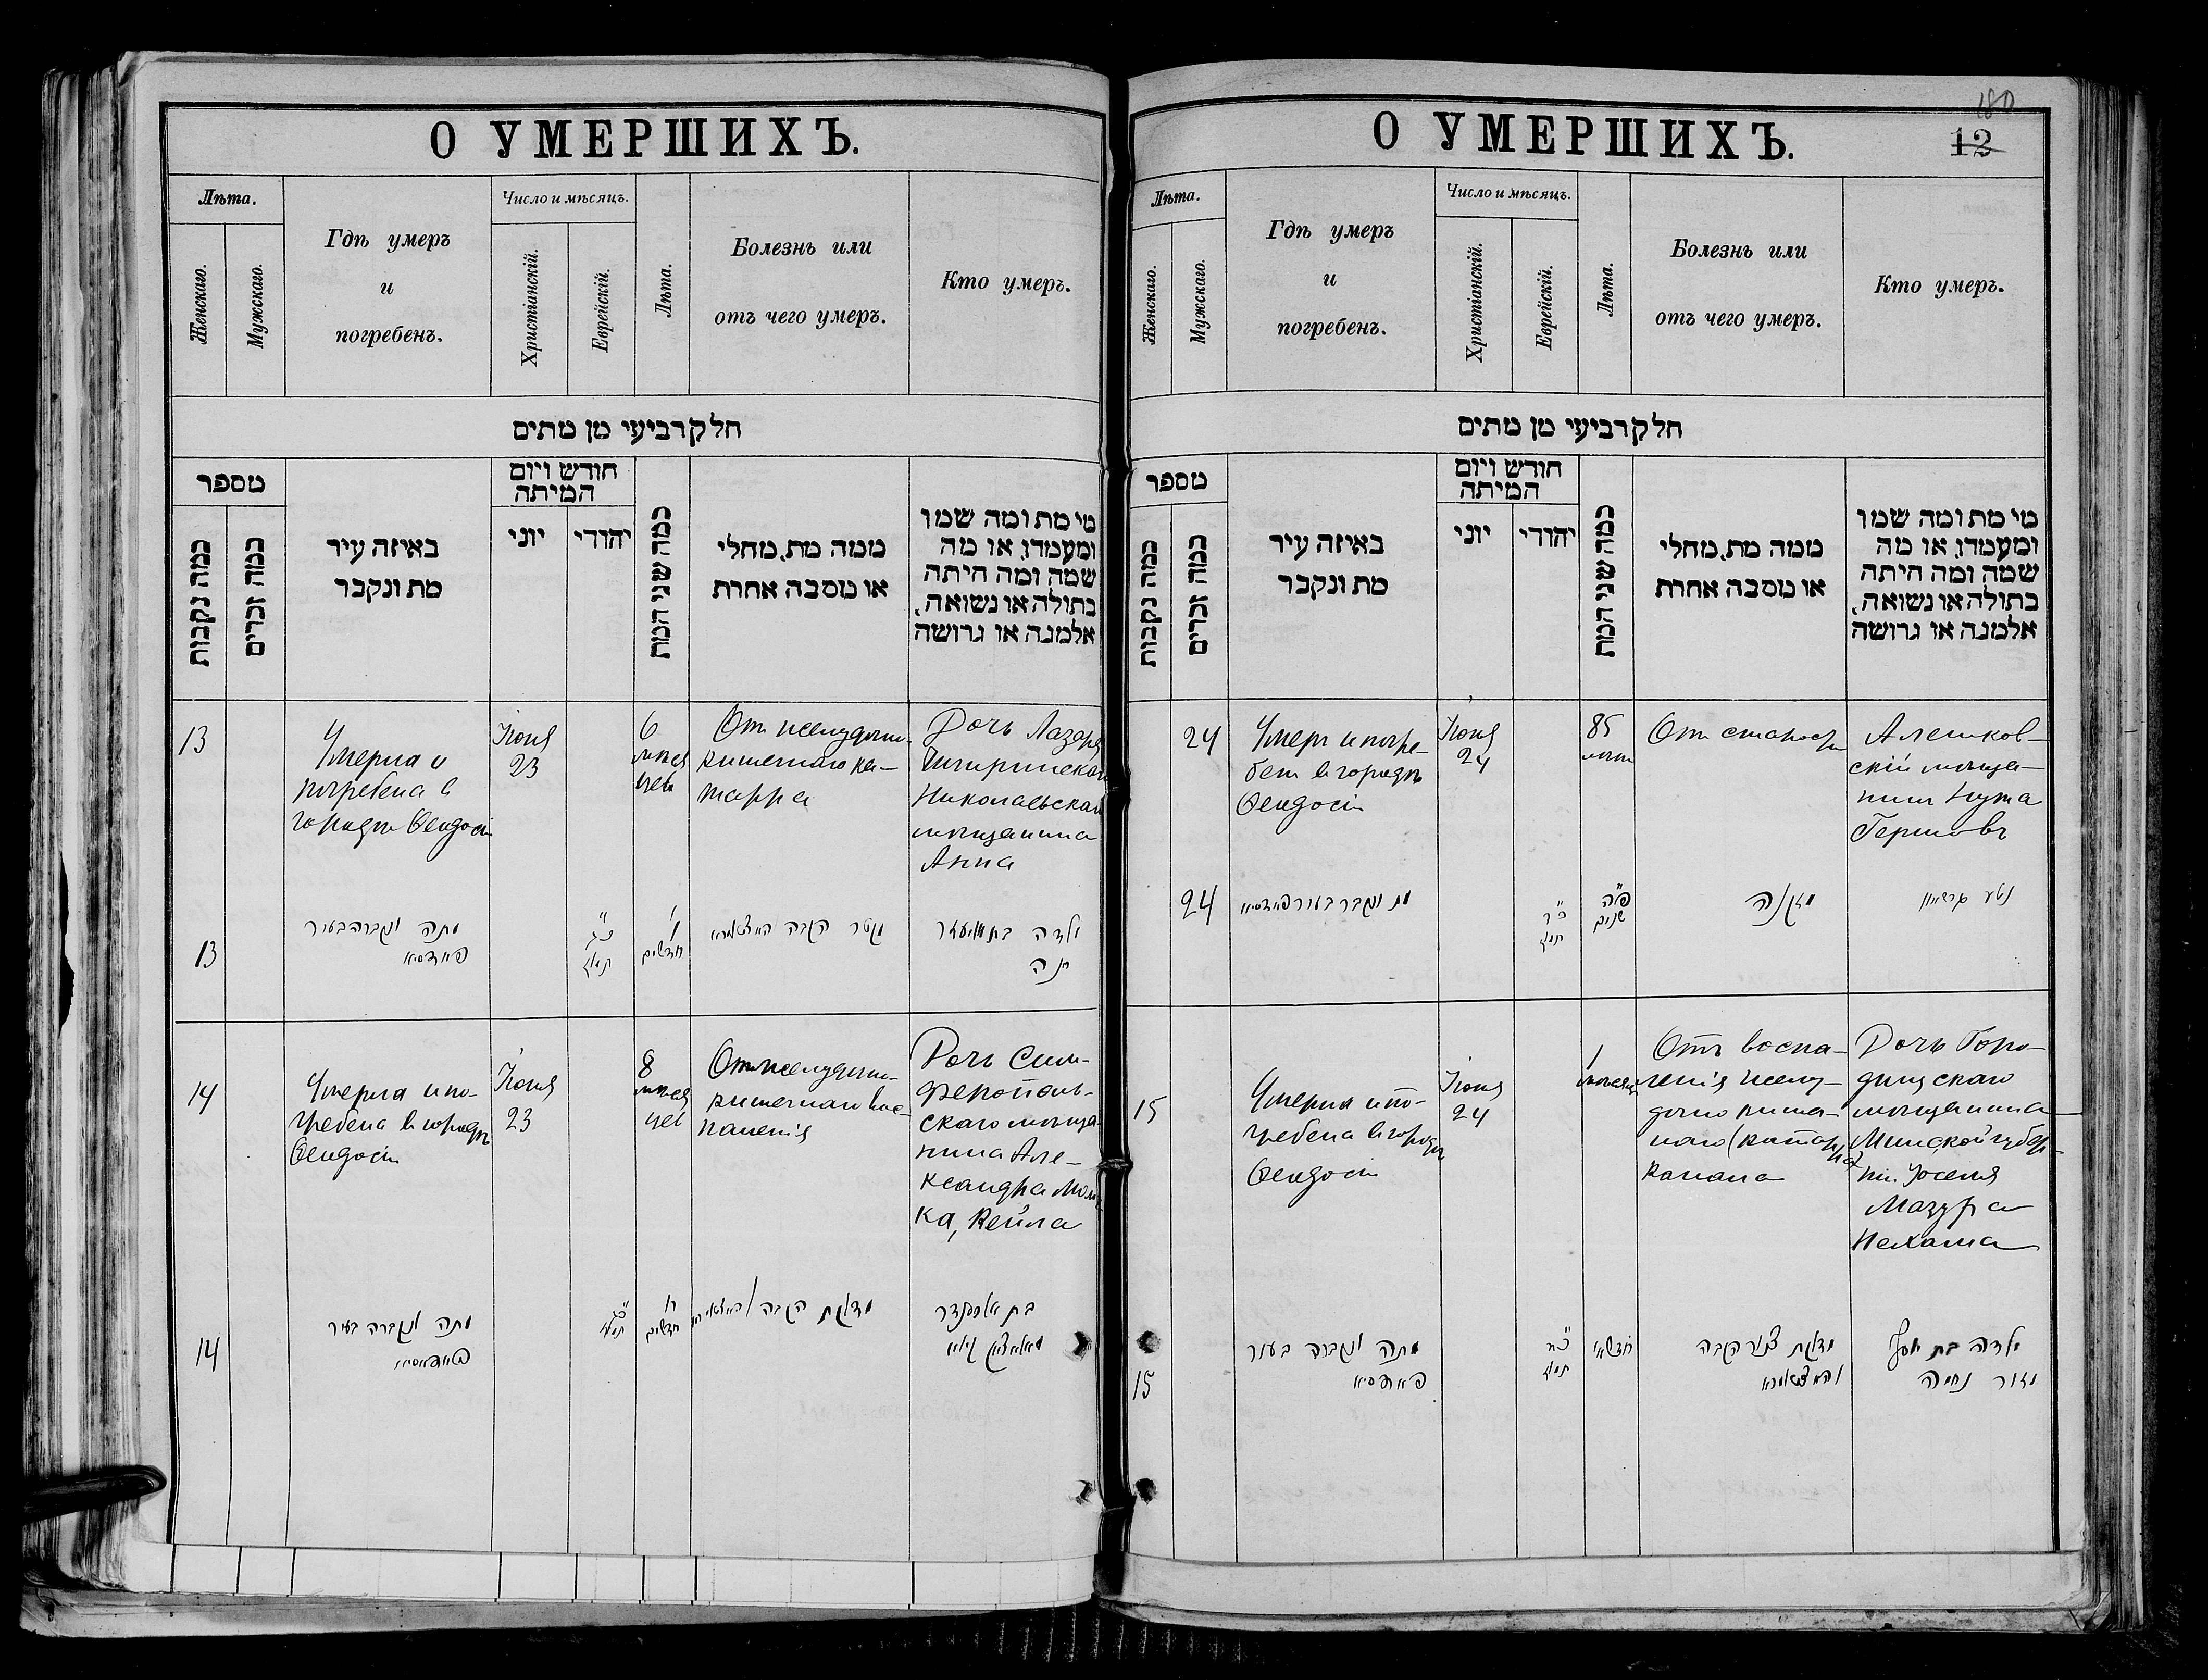 О УМЕРШИХЪ.
Лѣта.
Женскаго.
Мужскаго.
Гдѣ умеръ
и
погребенъ.
Число и мѣсяцъ.
Христіанскій.
Еврейскій.
Лѣта.
Болезнь или
отъ чего умеръ.
Кто умеръ.
חלק רביעי מן מתים
מספר
כמה נקבות
כמה זכרים
באיזה עיר
מת ונקבר
חודש ויום
המיתה
יוני
יהודי
כמה שני המת
ממה מת, מחלי
או מסבה אחרת
מי מת ומה שמו
ומעמדו, או מה
שמה ומה היתה
בתולה או נשואה,
אלמנה או גרושה
13
Умерла и
погребена в
городѣ Ѳеодосіи
Іюня
23
6
мѣся
цев
От желудочно-
кишечнаго ка-
тарра
Дочь Лазаря
Чигиринскаго
Николаевскаго
мѣщанина
Анна
13
מתה ונקברה בעיר
פיאדאסיא
כ״ג
תמוז
ו׳
חדשים
ילדה בת אליעזר
חנה
14
Умерла и по-
гребена в городѣ
Ѳеодосіи
Іюня
23
8
мѣся
цев
От желудочно-
кишечнаго вос-
паленія
Дочь Сим-
ферополь-
скаго мѣща-
нина Але-
ксандра
ка, Кейла
14
מתה ונקברה בעיר
כ״ג
תמוז
ח׳
חדשים
О УМЕРШИХЪ.
180
12
Лѣта.
Женскаго.
Мужскаго.
Гдѣ умеръ
и
погребенъ.
Число и мѣсяцъ.
Христіанскій.
Еврейскій.
Лѣта.
Болезнь или
отъ чего умеръ.
Кто умеръ.
חלק רביעי מן מתים
מספר
כמה נקבות
כמה זכרים
באיזה עיר
מת ונקבר
חודש ויום
המיתה
יוני
יהודי
כמה שני המת
ממה מת, מחלי
או מסבה אחרת
מי מת ומה שמו
ומעמדו, או מה
שמה ומה היתה
בתולה או נשואה,
אלמנה או גרושה
24
Умеръ и погре-
бенъ въ городѣ
Ѳеодосіи
Іюня
24
85
лѣтъ
От старости
Алешков-
скій мѣща-
нинъ Нута
Гершовъ
24
מת ונקבר בעיר
תמוז
פ״ה
שנים
מזקנה
15
Умерла и по-
гребена в городѣ
Ѳеодосіи
Іюня
24
1
мѣсяц
Отъ воспа-
ленія желу-
дочно кишеч-
наго (катарра)
канала
Дочь Горо-
дищскаго
мѣщанина
Минской губер-
ніи Іоселя
Мазура
Нехама
15
מתה ונקברה בעיר
תמוז
מדלקת צנור הקבה
ילדה בת יוסף
מזור נחמה